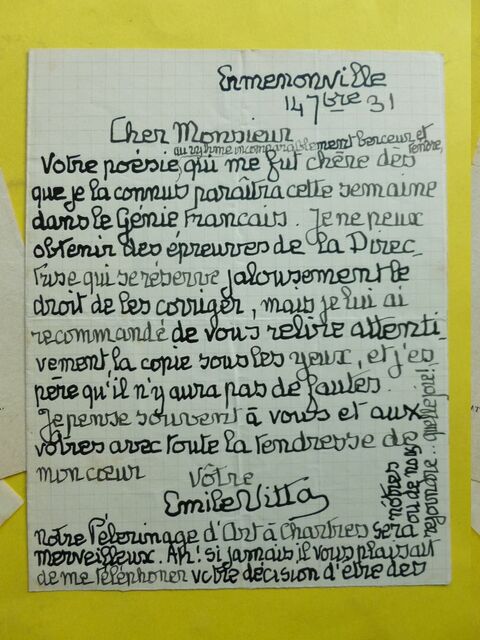 Ermenonville
14 7bre 31
Cher Monsieur
au rythme incomparablement berceur et tendre,
Votre poésie, qui me fut chère dès
que je la connus paraîtra cette semaine
dans le Génie Francais. Je ne peux
obtenir des épreuves de la Direc-
trise qui se réserve jalousement le
droit de les corriger, mais je lui ai
recommandé de vous relire attenti-
vement, la copie sous les yeux, et j'es
père qu'il n'y aura pas de fautes.
Je pense souvent à vous et aux
vôtres avec toute la tendresse de
mon coeur Vôtre
Emile Vitta
notre Pélerinage d'Art à Chartres sera
merveilleux. Ah! si jamais il vous plaisait
de me téléphoner votre décision d'etre des
nôtres
ou de nous
rejoindre.. quelle joie!